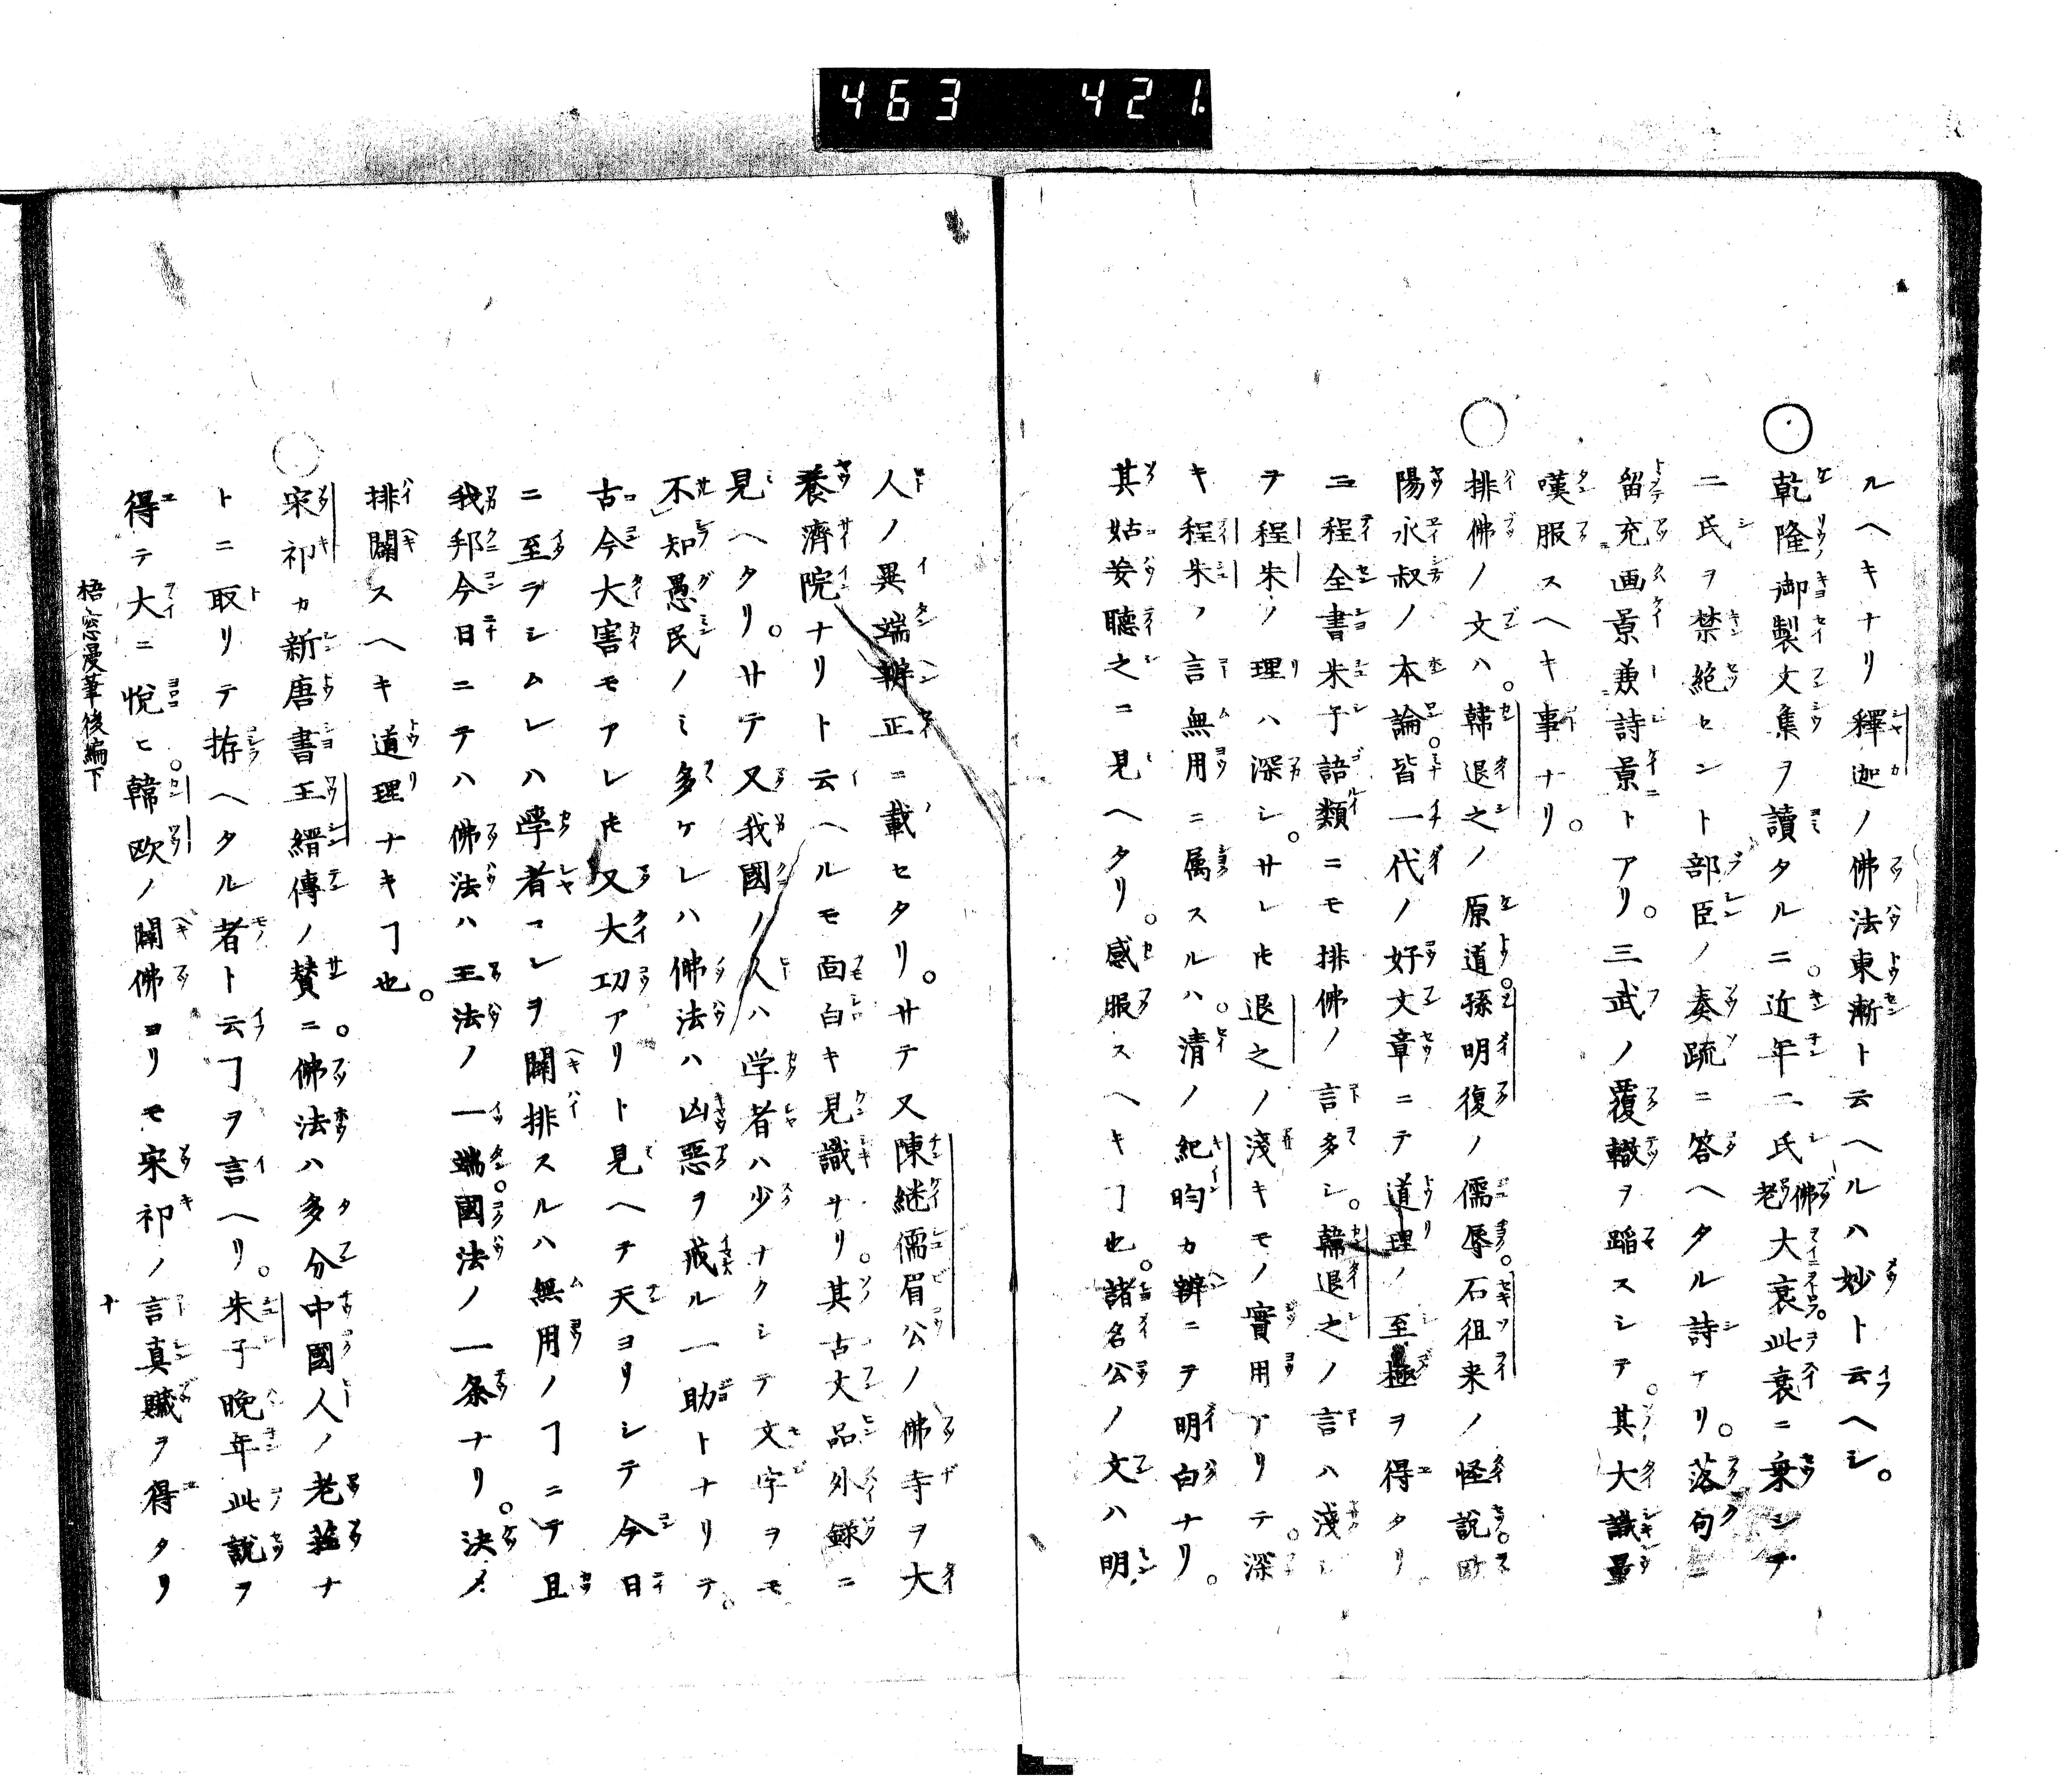 463 421
ルヘキナリ釋迦ノ佛法東漸ト云ヘルハ妙ト云ヘシ。
○乾隆御製文集ヲ讀タルニ。近年二氏佛老大衰。此衰ニ乗シテ
二氏ヲ禁絶セント部臣ノ奏疏ニ答ヘタル詩アリ。落句ニ
留充画景兼詩景トアリ。三武ノ覆轍ヲ蹈スシテ。其大識量
嘆服スヘキ事ナリ。
○排佛ノ文ハ。韓退之ノ原道。孫明復ノ儒辱。石徂来ノ怪説。欧
陽永叔ノ本論。皆一代ノ好文章ニテ道理ノ至極ヲ得タリ
二程全書朱子語類ニモ排佛ノ言多シ。韓退之ノ言ハ淺シ
程朱ノ理ハ深シ。サレ𪜈退之ノ淺キモノ實用アリテ。深
キ程朱ノ言無用ニ属スルハ。清ノ紀昀カ辨ニヲ明白ナリ。
其姑妄聽之ニ見ヘタリ。感服スヘキヿ也。諸名公ノ文ハ明
人ノ異端辨正ニ載セタリ。サテ又陳継儒眉公ノ佛寺ヲ大
養濟院ナリト云ヘルモ面白キ見識ナリ。其古文品外録ニ
見ヘタリ。サテ又我國ノ人ハ学者ハ少ナクシテ文字ヲモ
不知愚民ノミ多ケレハ佛法ハ凶惡ヲ戒ル一助トナリテ。
古今大害モアレ𪜈又大功アリト見ヘテ天ヨリシテ今日
ニ至ラシムレハ學者コレヲ闢排スルハ無用ノヿニテ且
我邦今日ニテハ佛法ハ王法ノ一端。國法ノ一条ナリ。決〆
排闢スヘキ道理ナキヿ也。
○宋祁カ新唐書王縉傳ノ賛ニ。佛法ハ多分中國人ノ老莊ナ
トニ取リテ拵ヘタル者ト云ヿヲ言ヘリ。朱子晩年此説ヲ
得テ大ニ悅ヒ。韓歐ノ闢佛ヨリモ宋祁ノ言真贜ヲ得タリ
梧窓漫筆後編下
十